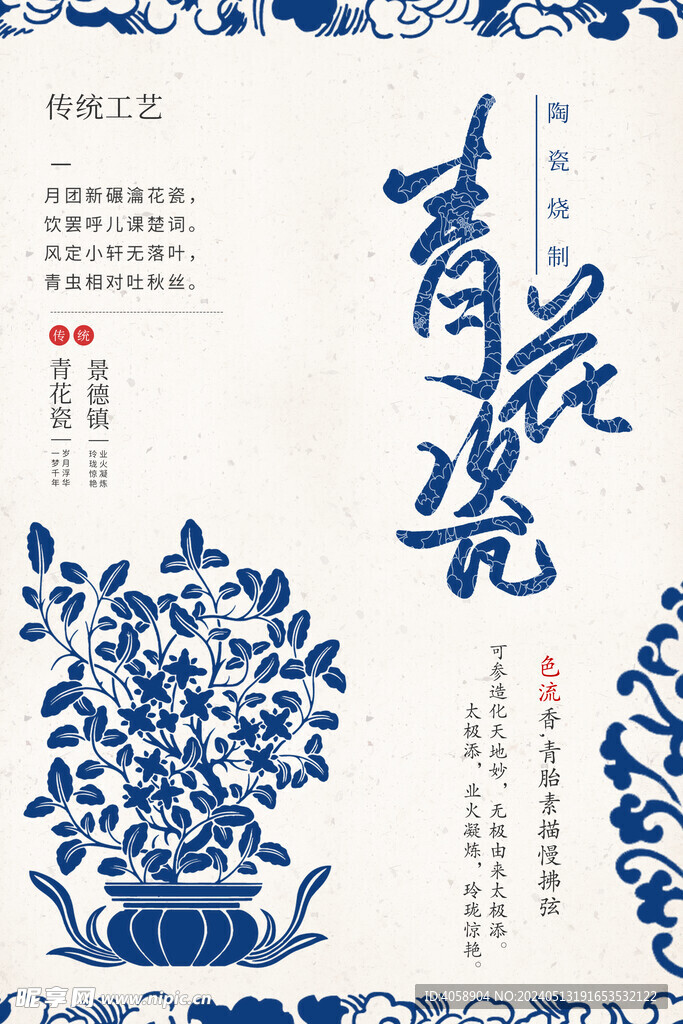 传统工艺
月团新碾瀹花瓷，
饮罢呼儿课楚词。
风定小轩无落叶，
青虫相对吐秋丝。
传统
景德镇
业火凝炼
玲珑惊艳
青花瓷
岁月浮华
一梦千年
陶瓷烧制
青花瓷
色流香.青胎素描慢拂弦
可参造化天地妙，无极由来太极添。
太极添，业火凝炼，玲珑惊艳。
昵享网 www.nipic.cn
ID:4058904 NO:20240513191653532122